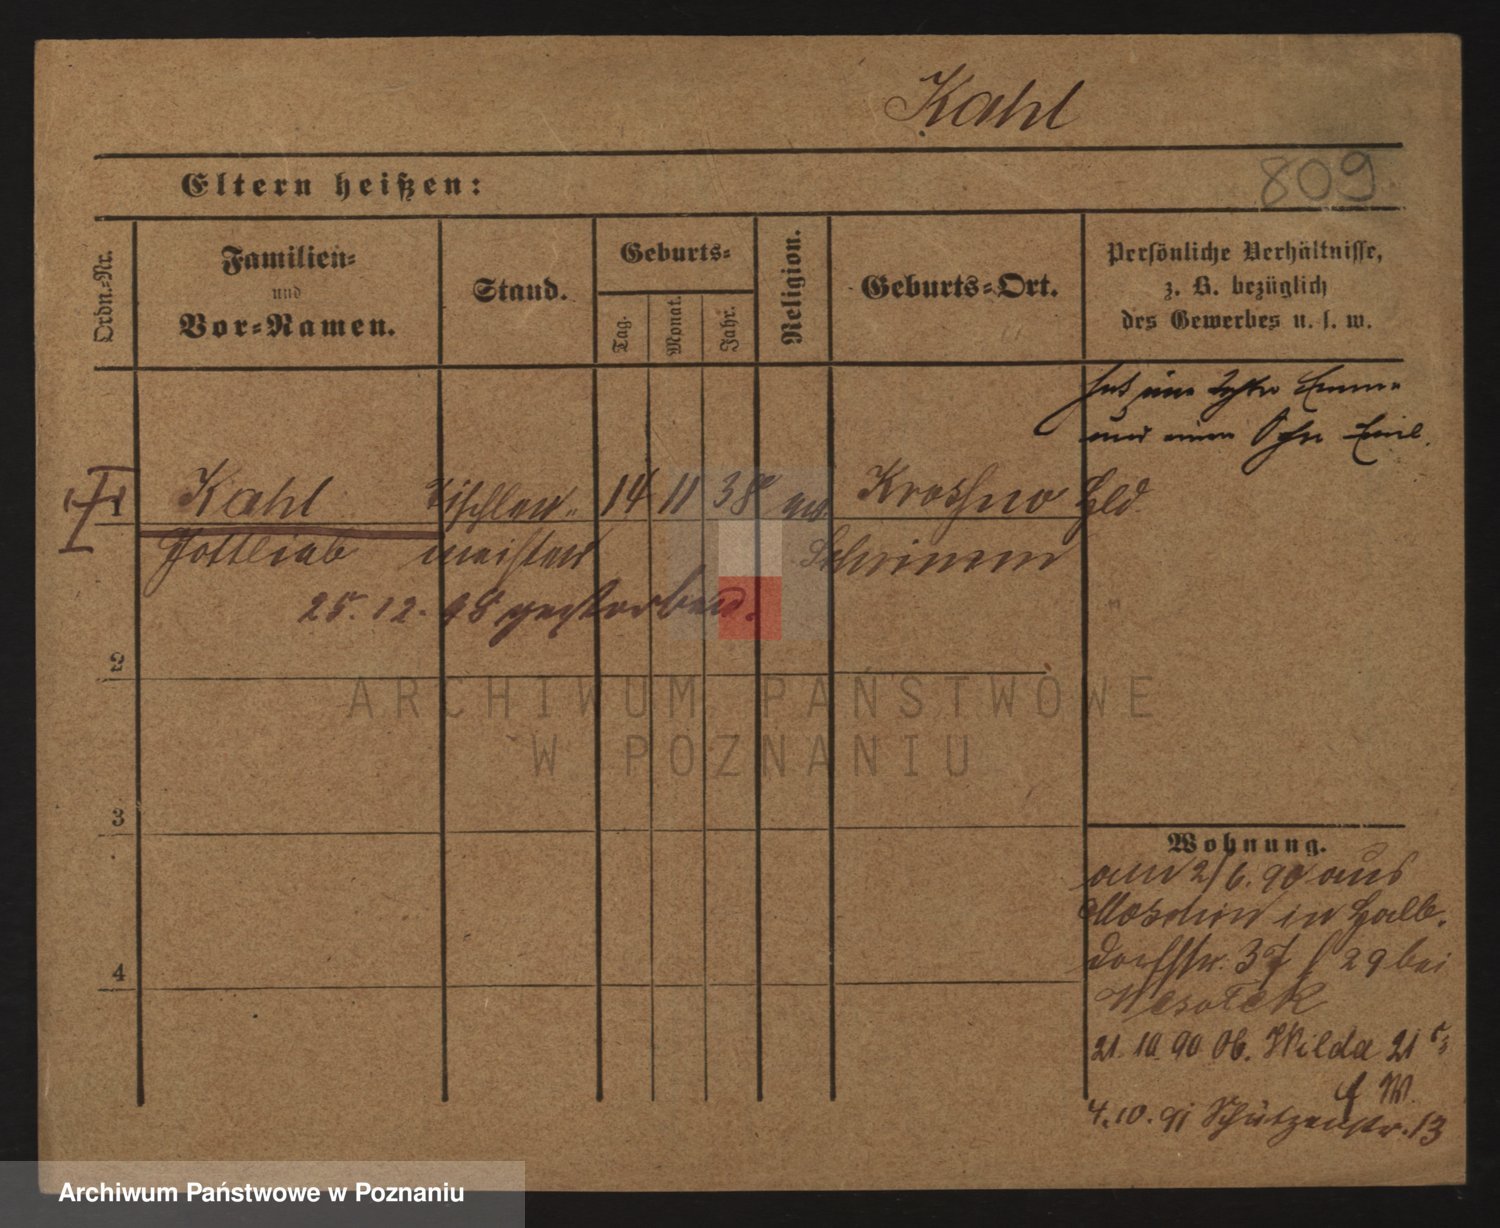 Kahl
809
Eltern heißen:
Ordn.-Nr.
Familien-
und
Vor-Namen.
Stand.
Geburts-
Tag.
Monat.
Jahr.
Religion.
Geburts-Ort.
Persönliche Verhältnisse,
z. B. bezüglich
des Gewerbes u. s. w.
und einen Sohn Emil.
1 Kahl Tischler- 14 11 38 ev. Krosno Hld
Gottlieb meister Schrimm
25. 12. 98 gestorben.
2
3
4
ARCHIWUM PAŃSTWOWE
W POZNANIU
Wohnung.
am 2/6. 90 aus
Moschin in Halb-
dorfstr. 37 f 29 bei
21. 10. 90 Ob. Wilda 21
4. 10. 91 Schützenstr. 13
Archiwum Państwowe w Poznaniu